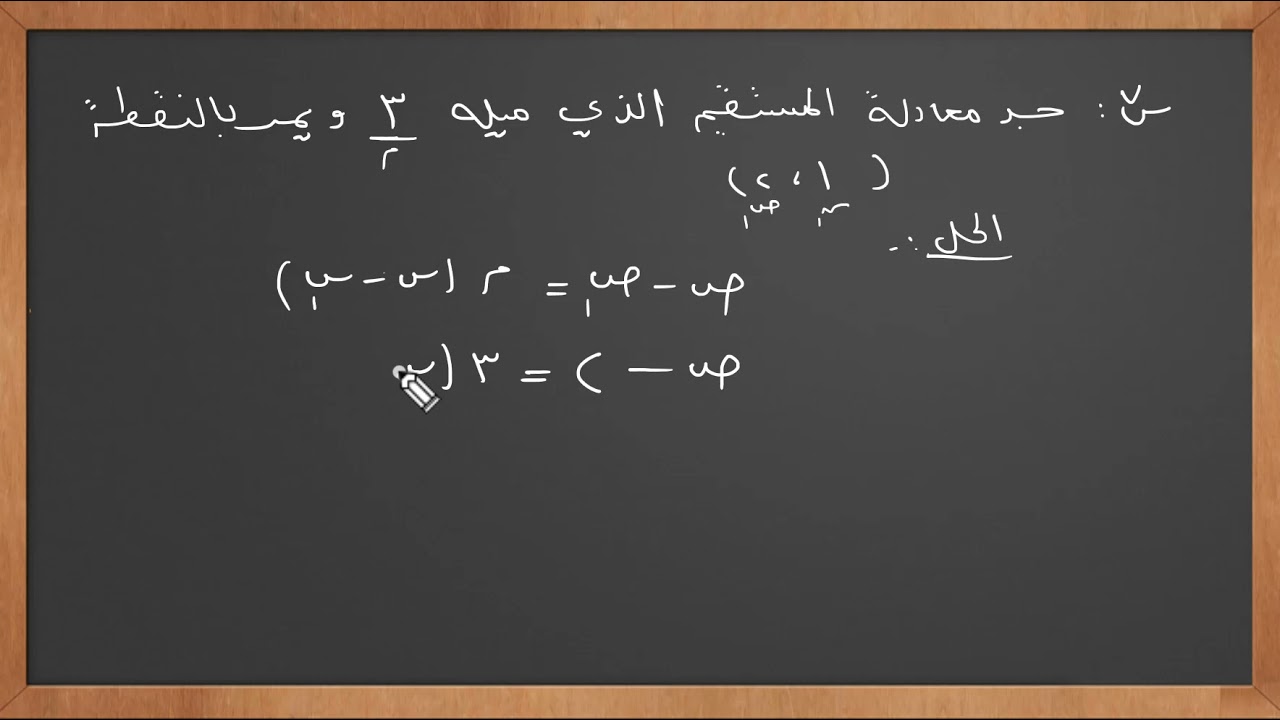 س: جد معادلة المستقيم الذي ميله ٣ ويمر بالنقطة
م
(١ ، ٢)
س١ ص١
الحل :-
ص - ص١ = م (س - س١)
ص - ٢ = ٣ (س